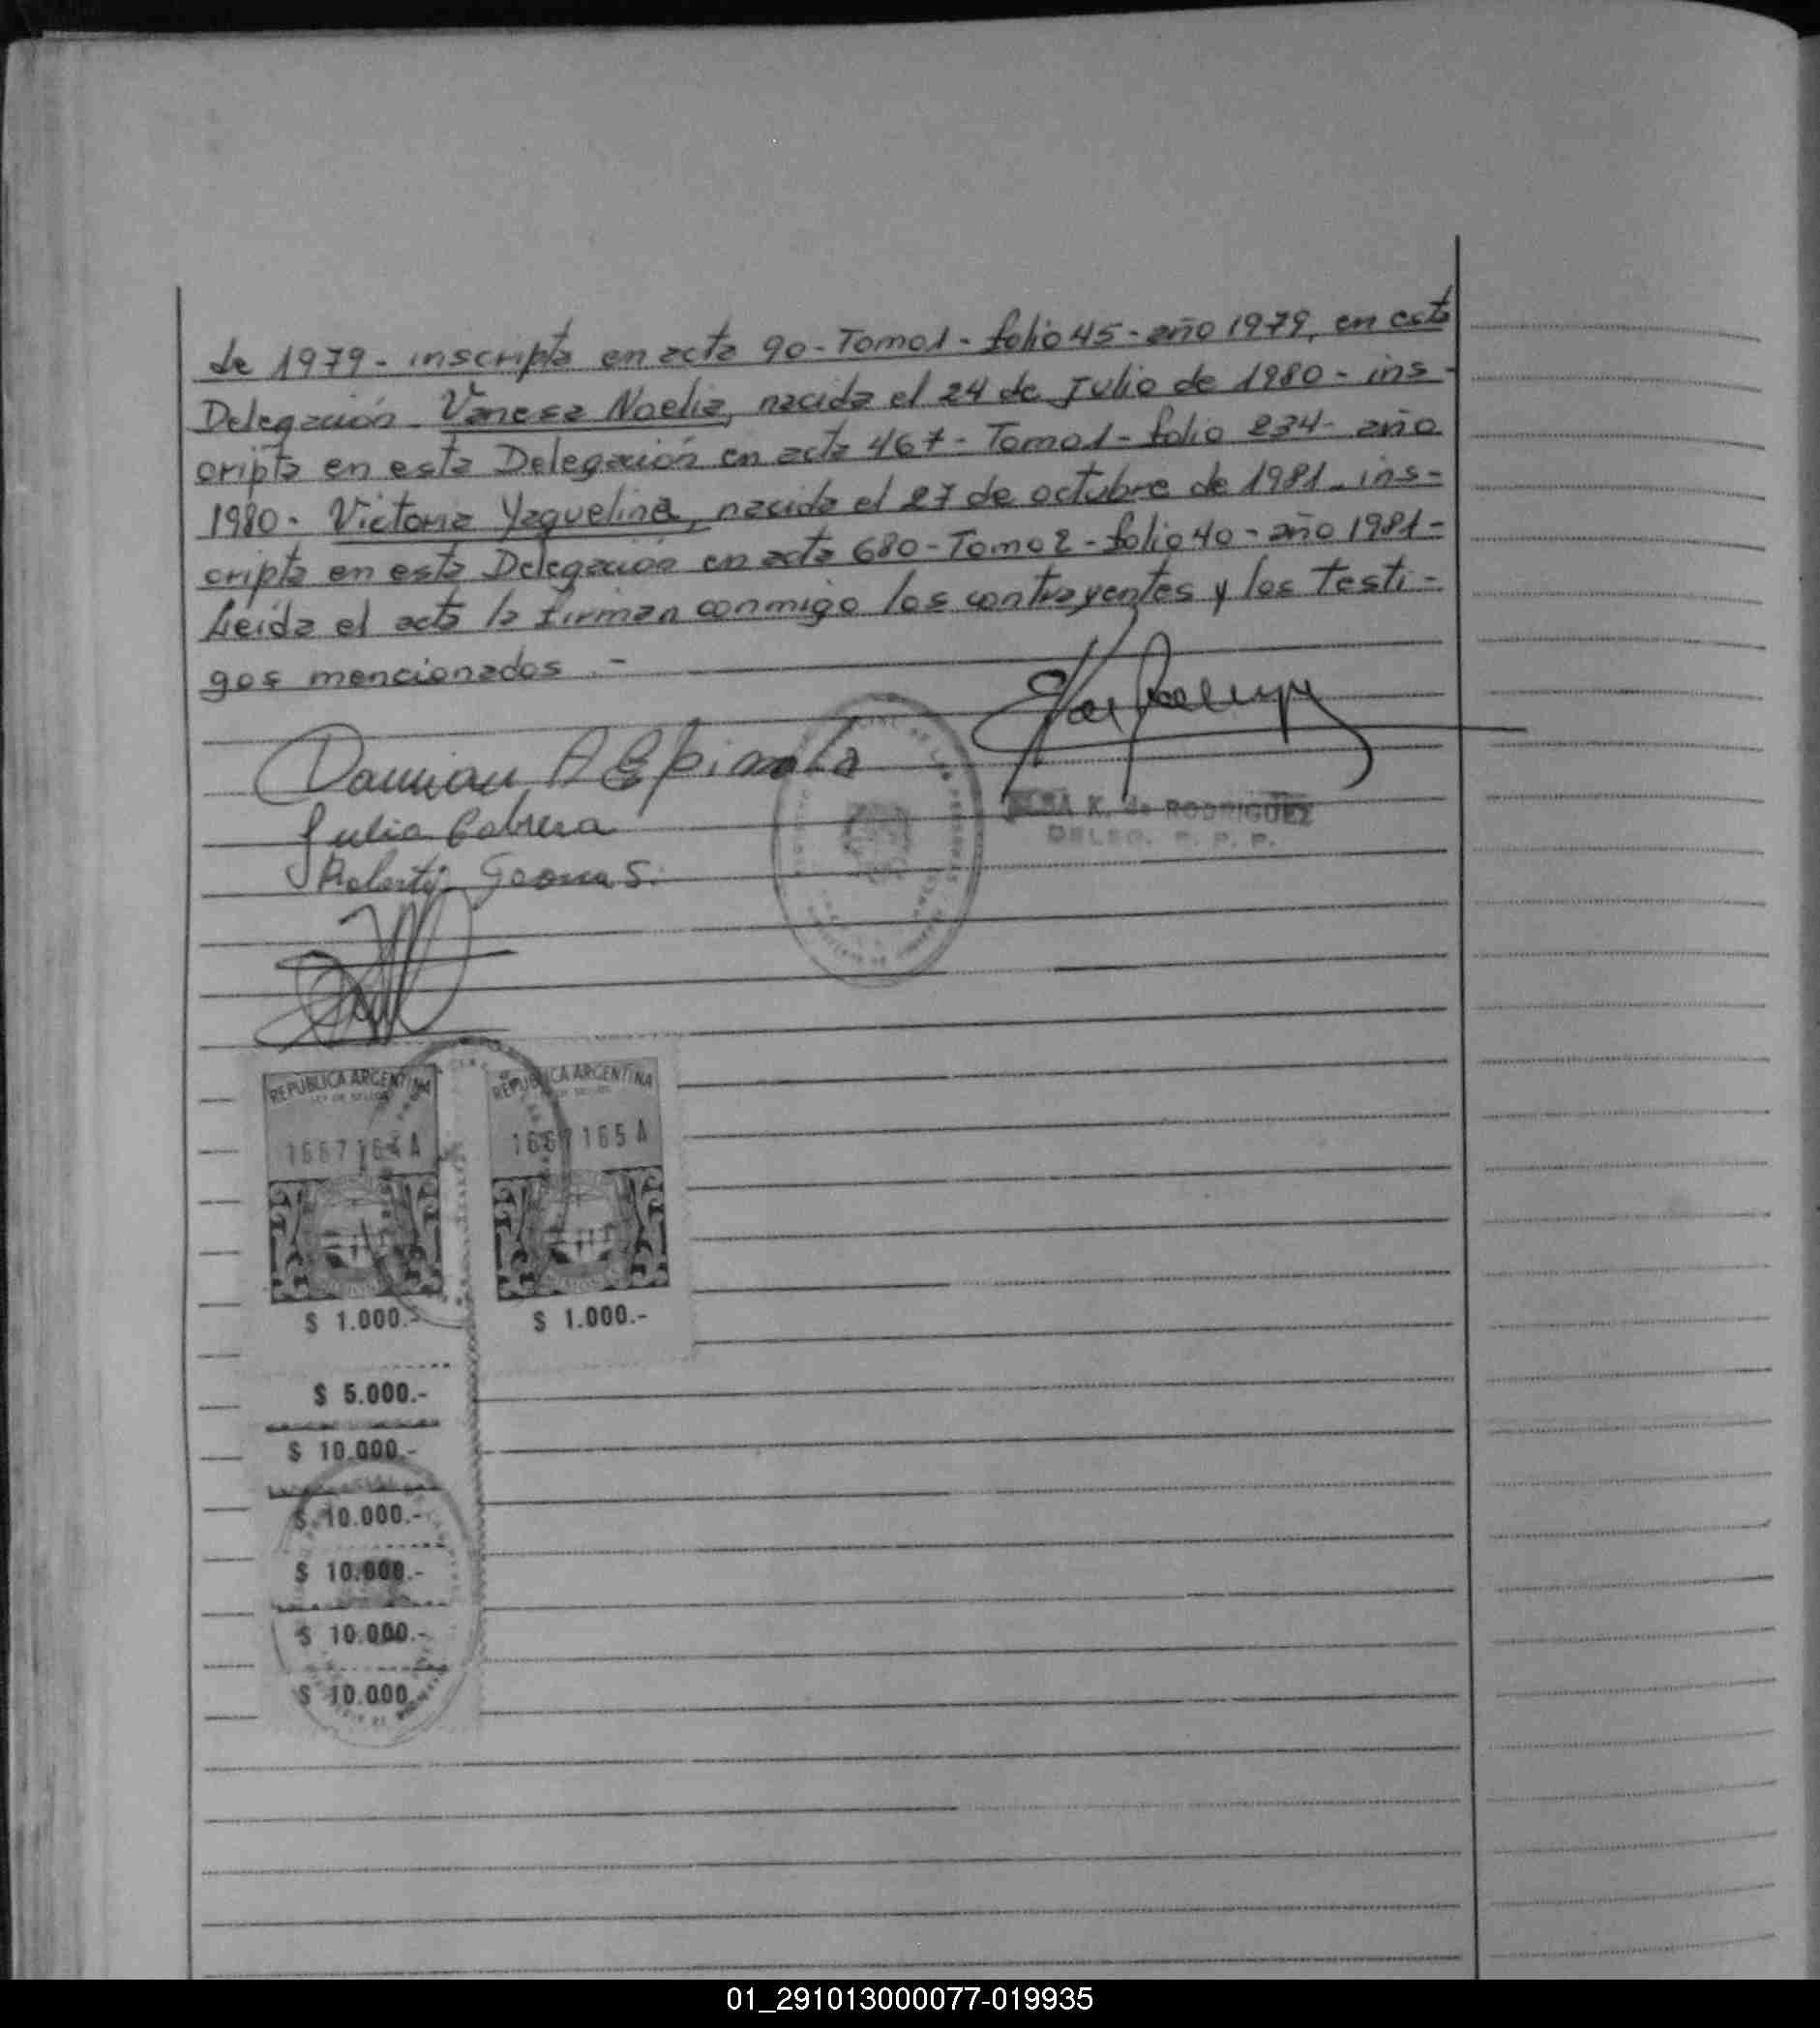 de 1979 - inscripta en acta 90 - Tomo 1 - folio 45 - año 1979, en esta
Delegación - Vanesa Noelia, nacida el 24 de Julio de 1980 - ins-
cripta en esta Delegación en acta 467 - Tomo 1 - folio 234 - año
1980 - Victoria Yaquelina, nacida el 27 de octubre de 1981 - ins-
cripta en esta Delegación en acta 680 - Tomo 2 - folio 40 - año 1981 -
Leída el acta la firman conmigo los contrayentes y los Testi-
gos mencionados . -
Damian A Espinola
Julia Cabrera
K. de RODRIGUEZ
DELEG.
REPUBLICA ARGENTINA
REPUBLICA ARGENTINA
LEY DE SELLOS
1667165 A
$ 1.000.-
$ 1.000.-
$ 5.000.-
$ 10.000.-
$ 10.000.-
$ 10.000.-
$ 10.000.-
$ 10.000.-
01_291013000077-019935